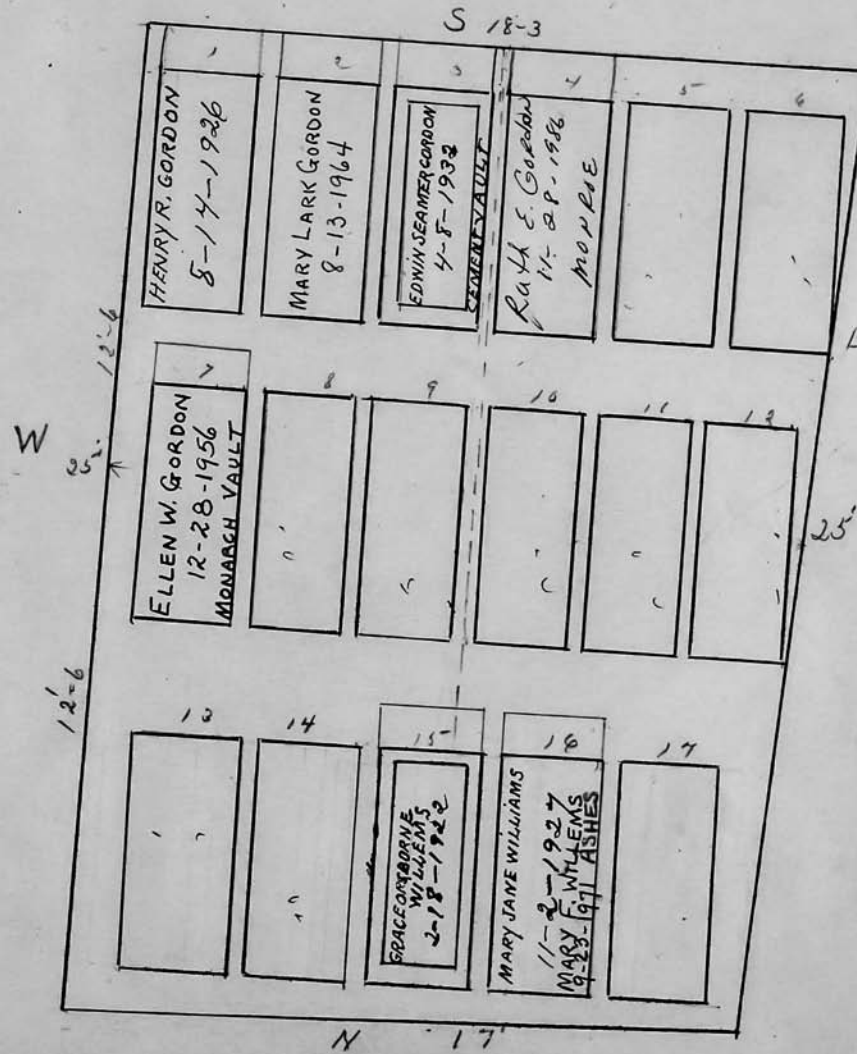 S 18-3
1
2
3
4
5
6
HENRY R. GORDON
8-14-1926
MARY LARK GORDON
8-13-1964
EDWIN SEAMER GORDON
4-8-1932
CEMENT VAULT
Ruth E. Gordon
11-28-1986
MONROE
12'-6
W
25'
7
8
9
10
11
12
ELLEN W. GORDON
12-28-1956
MONARCH VAULT
25'
12'-6
13
14
15
16
17
GRACE OSBORNE
WILLEMS
2-18-1922
MARY JANE WILLIAMS
11-2-1927
MARY F. WILLEMS
9-23-1971 ASHES
N 17'